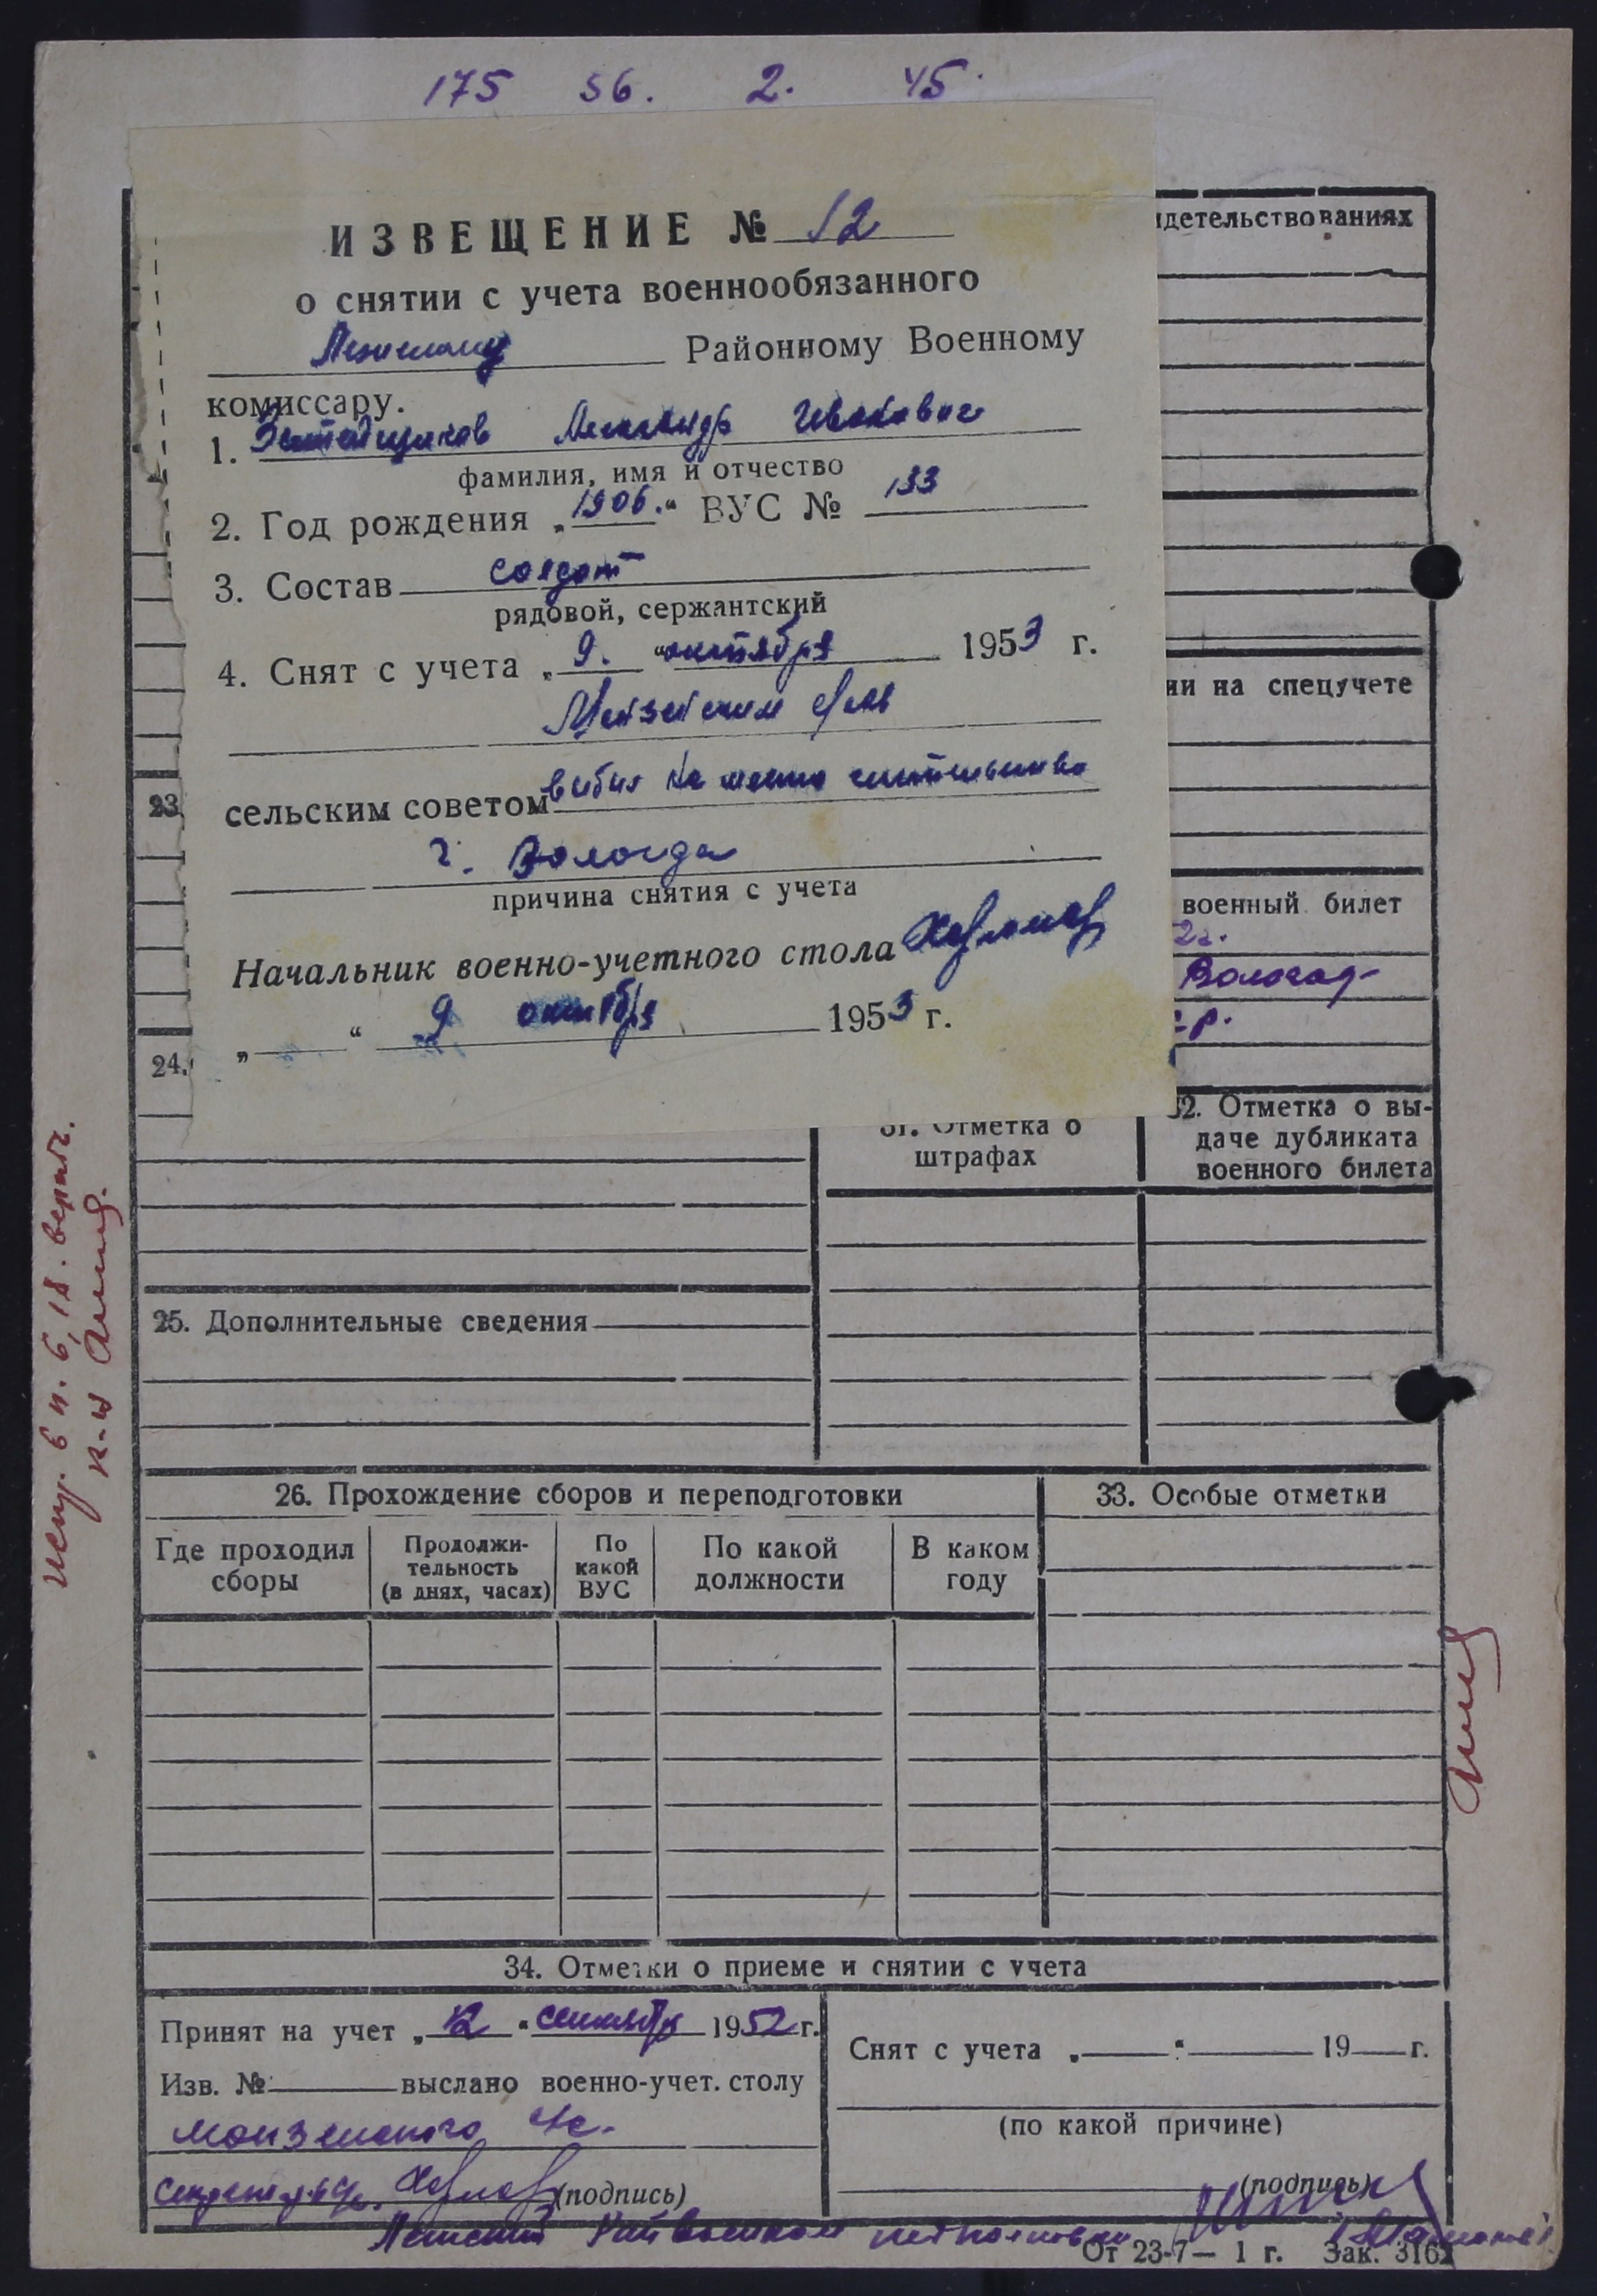 175 56. 2. 45.
ИЗВЕЩЕНИЕ № 12
о снятии с учета военнообязанного
Районному Военному
комиссару.
1. Александр Иванович
фамилия, имя и отчество
2. Год рождения „1906.“ ВУС № 133
3. Состав солдат
рядовой, сержантский
4. Снят с учета „9.“ октября 1953 г.
сельским советом выбыл на место жительства
г. Вологда
причина снятия с учета
Начальник военно-учетного стола
„ “ 9 октября 1953 г.
идетельствованиях
ии на спецучете
военный билет
2г.
Вологод-
23
24.
31. Отметка о
штрафах
32. Отметка о вы-
даче дубликата
военного билета
25. Дополнительные сведения
26. Прохождение сборов и переподготовки
33. Особые отметки
Где проходил
сборы
Продолжи-
тельность
(в днях, часах)
По
какой
ВУС
По какой
должности
В каком
году
34. Отметки о приеме и снятии с учета
Принят на учет „12“ сентября 1952 г.
Изв. № выслано военно-учет. столу
Монзенского
(подпись)
Снят с учета „ “ 19 г.
(по какой причине)
(подпись)
От 23-7— 1 г. Зак. 3162